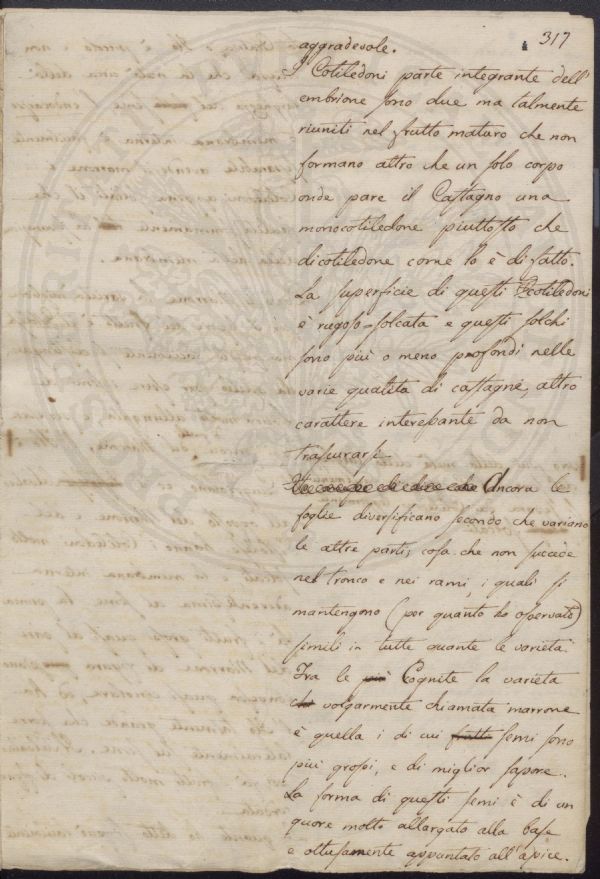 317
aggradevole.
I Cotiledoni parte integrante dell'
embrione sono due ma talmente
riuniti nel frutto maturo che non
formano altro che un solo corpo
onde pare il Castagno una
monocotiledone piuttosto che
dicotiledone come lo è di fatto.
La superficie di questi Cotiledoni
è rugoso-solcata e questi solchi
sono più o meno profondi nelle
varie qualità di castagne, altro
carattere interessante da non
trascurarsi.
Ancora le
foglie diversificano secondo che variano
le altre parti, cosa che non succede
nel tronco e nei rami, i quali si
mantengono (per quanto ho osservato)
simili in tutte quante le varietà.
Tra le più Cognite la varietà
volgarmente chiamata marrone
è quella i di cui frutti semi sono
più grossi, e di miglior sapore.
La forma di questi semi è di un
quore molto allargato alla base
e ottusamente appuntato all'apice.